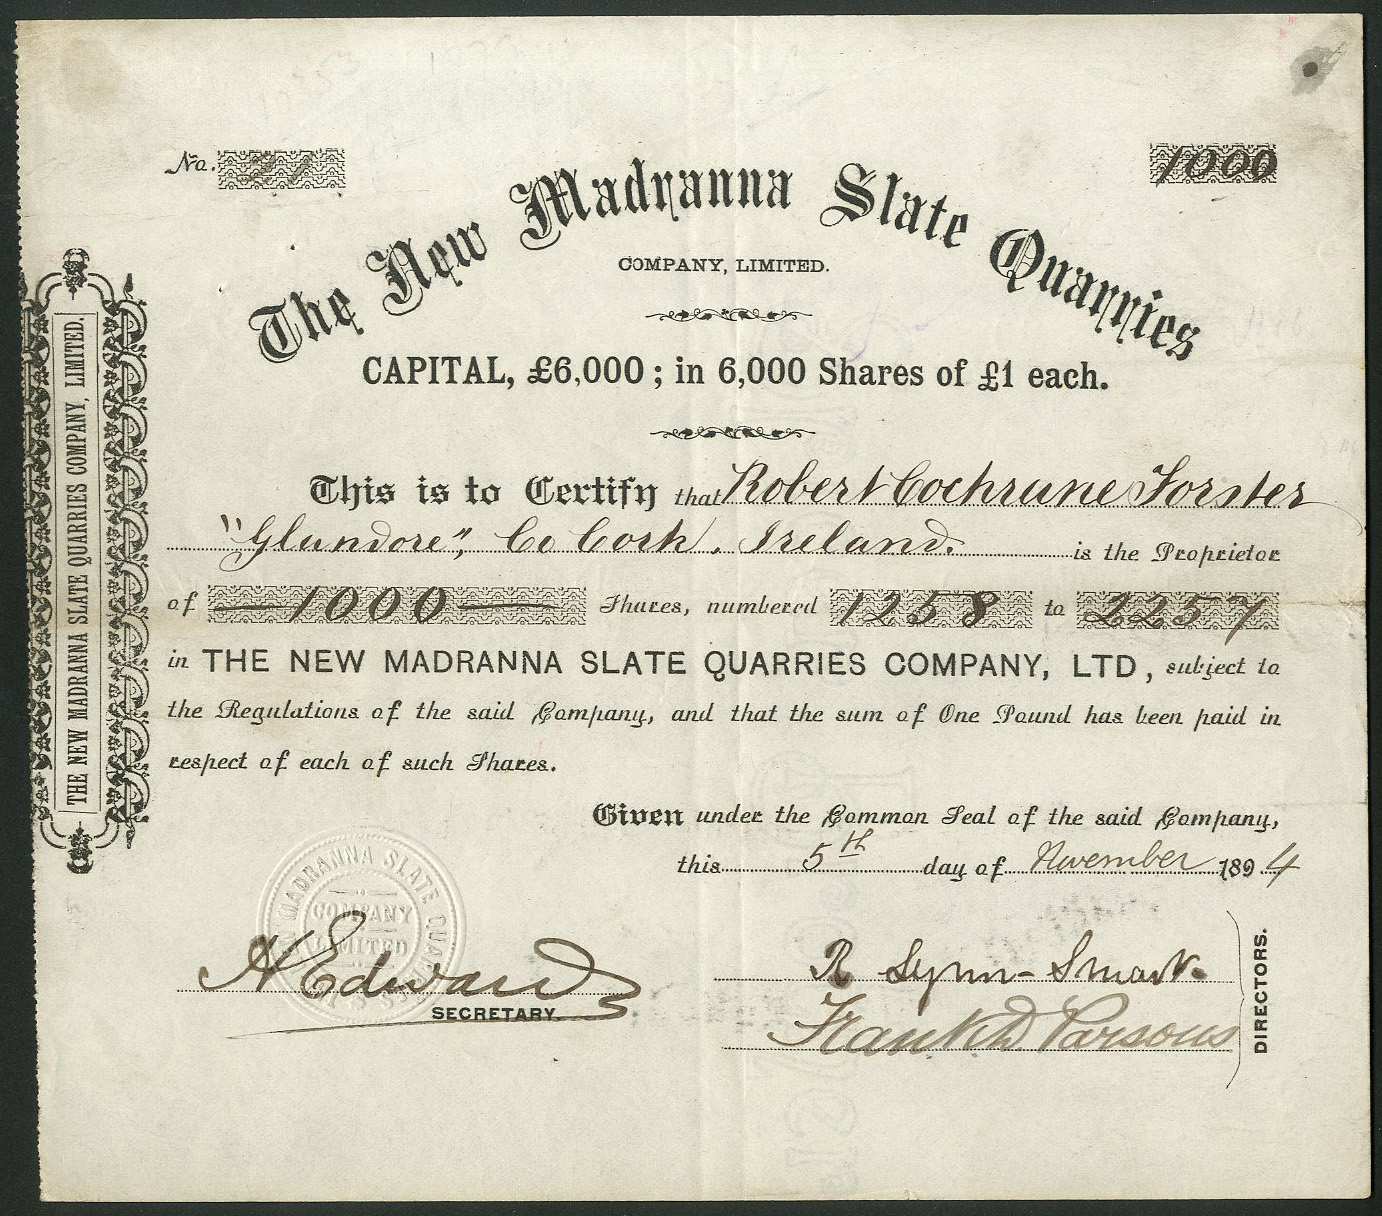 No. 21
1000
The New Madranna Slate Quarries
COMPANY, LIMITED.
CAPITAL, £6,000; in 6,000 Shares of £1 each.
This is to Certify that Robert Cochrane Forster
"Glandore", Co Cork. Ireland. is the Proprietor
of 1000 Shares, numbered 1258 to 2257
in THE NEW MADRANNA SLATE QUARRIES COMPANY, LTD, subject to
the Regulations of the said Company, and that the sum of One Pound has been paid in
respect of each of such Shares.
Given under the Common Seal of the said Company,
this 5th day of November 1894
H Edwards
SECRETARY.
R Lynn-Smart.
Frank D. Parsons
DIRECTORS.
THE NEW MADRANNA SLATE QUARRIES COMPANY, LIMITED.
MADRANNA SLATE
COMPANY
LIMITED